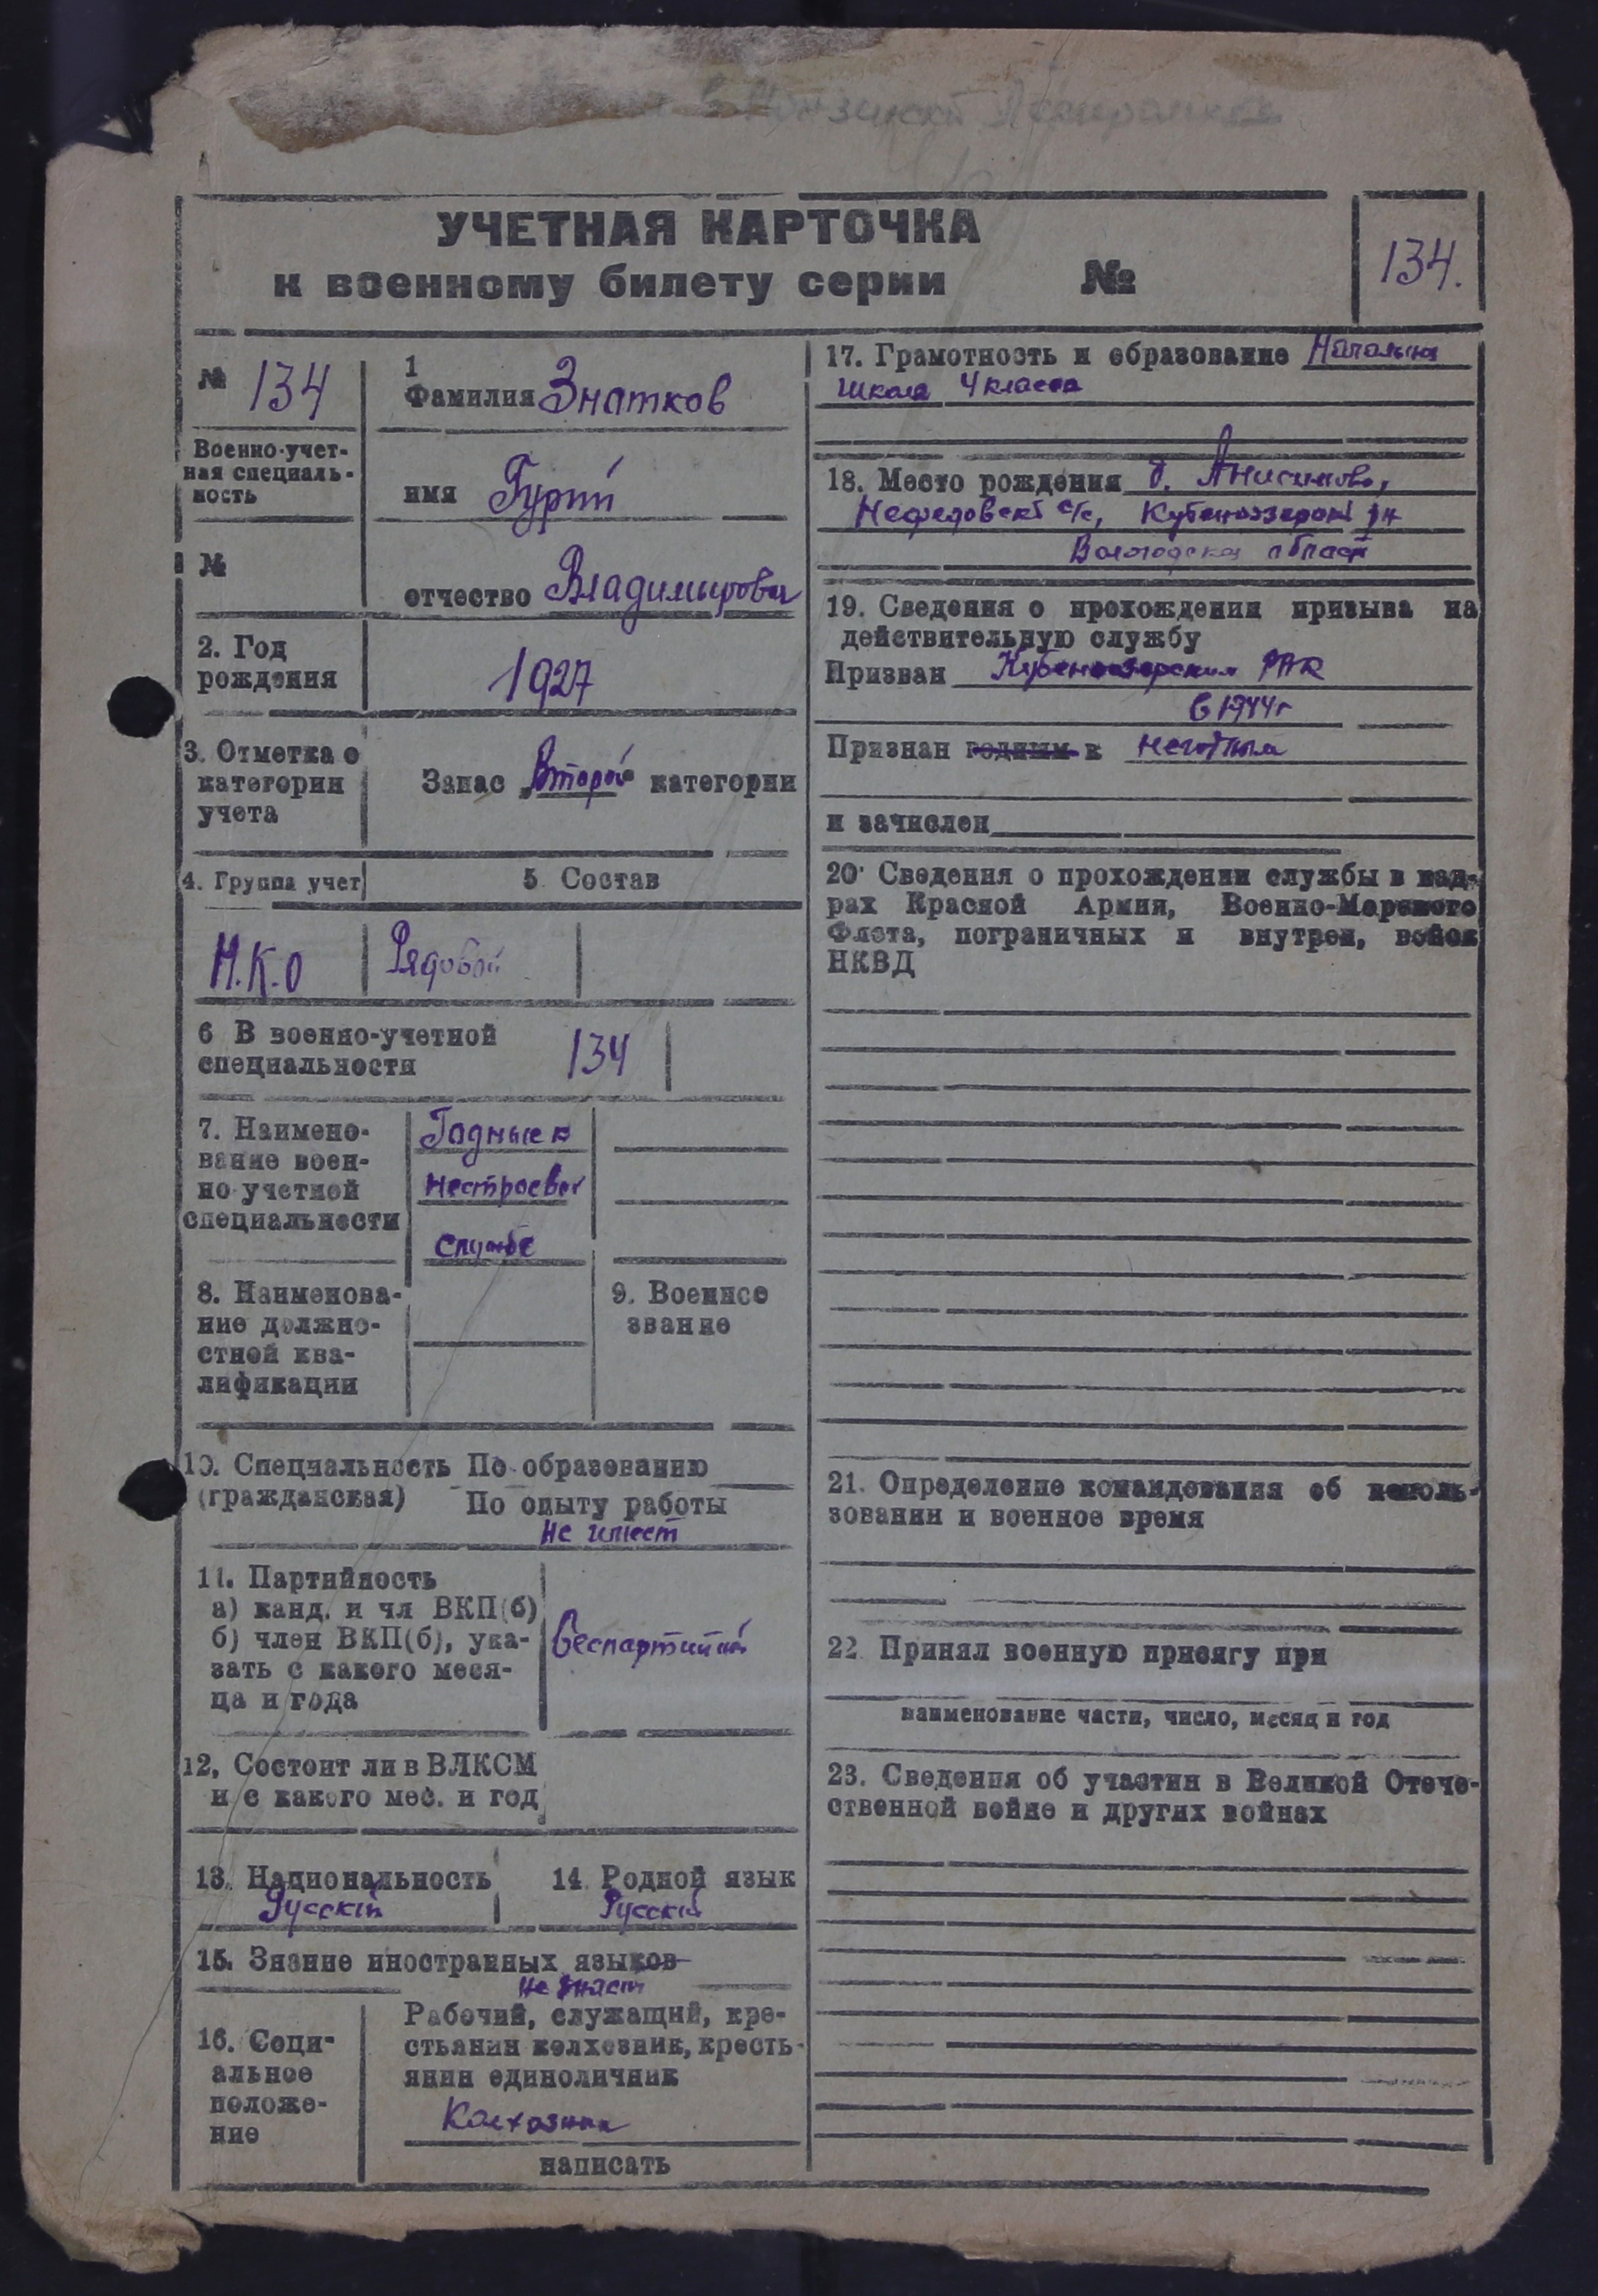 УЧЕТНАЯ КАРТОЧКА
к военному билету серии №
134.
№ 134
Военно-учет-
ная специаль-
ность
№
1
Фамилия Знатков
имя Гурий
отчество Владимирович
2. Год
рождения
1927
3. Отметка о
категории
учета
Запас „Второй“ категории
4. Группа учет
5. Состав
Н.К.О
Рядовой
6 В военно-учетной
специальности
134
7. Наимено-
вание воен-
но-учетней
специальности
Годные к
нестроевой
службе
8. Наименова-
ние должно-
стной ква-
лификации
9. Военнсе
звание
10. Специальность По образованию
(гражданская) По опыту работы
Не имеет
11. Партийность
а) канд. и чл ВКП(б)
б) член ВКП(б), ука-
зать с какого меся-
ца и года
беспартийный
12, Состоит ли в ВЛКСМ
и с какого мес. и год
13. Национальность
Русский
14 Родной язык
Русский
15. Знание иностранных языков
Не знает
16. Соци-
альное
положе-
ние
Рабочий, служащий, кре-
стьянин колхозник, кресть-
янин единоличник
Колхозник
написать
17. Грамотность и образование Начальная
школа 4 класса
18. Место рождения д. Анисимово,
Нефедовск с/с, Кубеноозерск рн
Вологодская област
19. Сведения о прохождении призыва на
действительную службу
Призван Кубеноозерским РВК
в 1944г
Признан годным к негодным
и зачислен
20. Сведения о прохождении службы в кад-
рах Красной Армии, Военно-Морского
Флота, пограничных и внутрен, войск
НКВД
21. Определение командования об исполь-
зовании и военное время
22 Принял военную присягу при
наименование части, число, месяц и год
23. Сведения об участии в Великой Отече-
ственной войне и других войнах